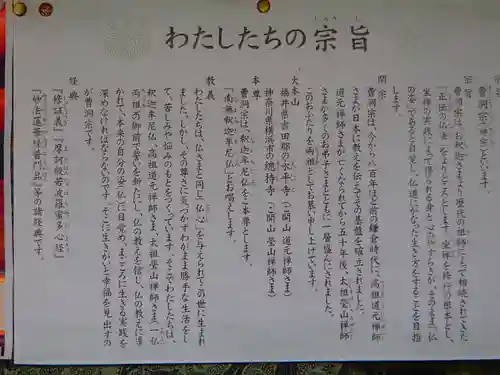 わたしたちの宗旨
しゅうし
宗名
曹洞宗(禅宗)といいます。
宗旨
曹洞宗は、お釈迦さまより歴代の祖師によって相続されてきた
「正伝の仏法」をよりどころとします。坐禅の修行を根本とし、
坐禅の実践によって得られる身と心のやすらぎが、そのまま「仏
の姿」であると自覚し、仏道にかなった生き方をすることを目指
します。
開宗
曹洞宗は、今から八百年ほど前の鎌倉時代に、高祖道元禅師
さまが日本に教えを伝えてその基盤を確立されました。
道元禅師さまが亡くなられてから五十年後、太祖瑩山禅師
さまが多くのお弟子さまとともに一層盛んにされました。
このおふたりを両祖としてお慕い申し上げています。
大本山
福井県吉田郡の永平寺(ご開山 道元禅師さま)
神奈川県横浜市の總持寺(ご開山 瑩山禅師さま)
本尊
曹洞宗は、釈迦牟尼仏をご本尊とします。
「南無釈迦牟尼仏」とお唱えします。
教義
わたしたちは、仏さまと同じ「仏心」を与えられてこの世に生まれ
ました。しかし、その尊さに気づかずわがまま勝手な生活をし
て、苦しみや悩みのもとをつくっています。そこでわたしたちは、
釈迦牟尼仏、高祖道元禅師さま、太祖瑩山禅師さま「一仏
両祖」の御前で誓いを新たにし、仏の教えを信じ、仏の教えに導
かれて本来の自分の姿(仏)に目覚め、まごころに生きる実践を
深めなければならないのです。そこに生きがいと幸福を見出すの
が曹洞宗です。
経典
『修証義』『摩訶般若波羅蜜多心経』
『妙法蓮華経普門品』等の諸経典です。